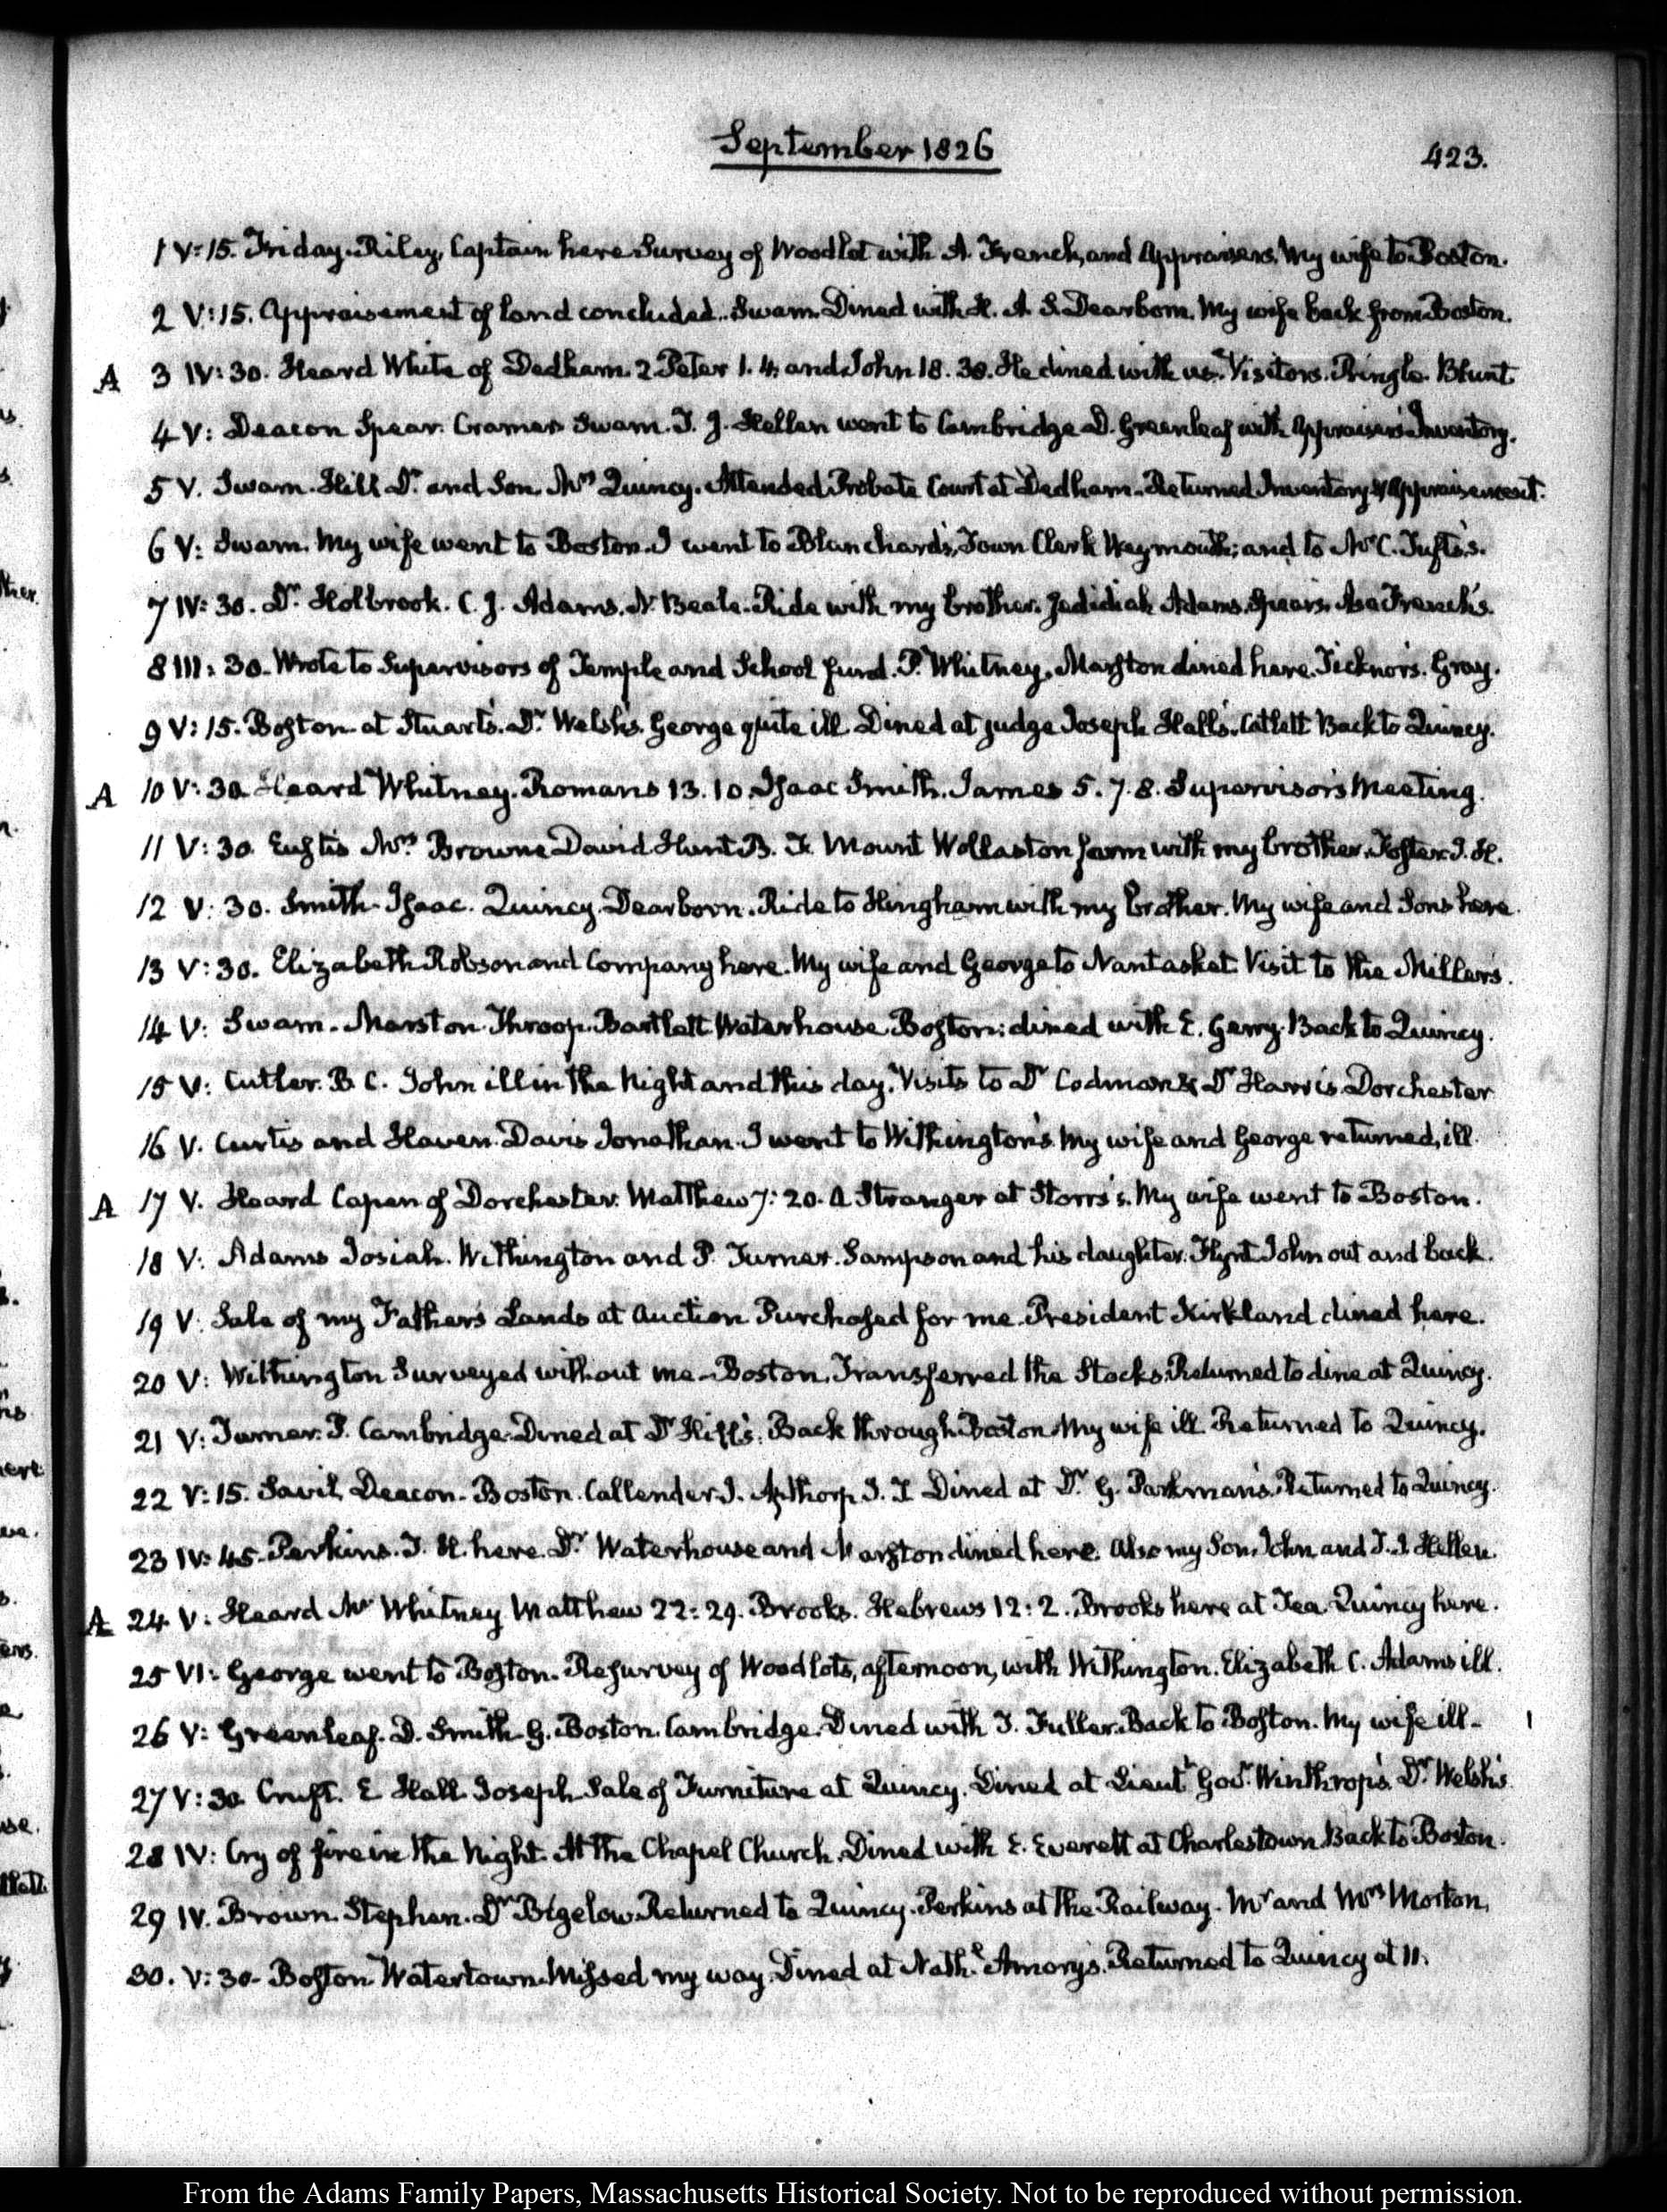 September 1826
423.
1 V:15. Friday. Riley, Captain here Survey of Woodlot with A. French, and Appraisers. My wife to Boston.
2 V:15. Appraisement of land concluded. Swam. Dined with H. A. S. Dearborn. My wife back from Boston.
A 3 IV:30. Heard White of Dedham. 2 Peter 1. 4. and John 18. 38. He dined with us. Visitors. Pringle. Blunt
4 V: Deacon Spear. Cramer. Swam. T. J. Hellen went to Cambridge D. Greenleaf with Appraiser's Inventory.
5 V. Swam. Hill Dr. and Son. Mrs Quincy. Attended Probate Court at Dedham. Returned Inventory & Appraisement.
6 V: Swam. My wife went to Boston. I went to Blanchard's, Town Clerk Weymouth; and to Mr C. Tufts's.
7 IV:30. Dr. Holbrook. C. J. Adams. N. Beale. Ride with my brother. Jedidiah Adams. Spears. Asa French's.
8 III:30. Wrote to Supervisors of Temple and School fund. P. Whitney. Marston dined here. Ticknor's. Gray.
9 V:15. Boston at Stuart's. Dr. Welsh's. George quite ill. Dined at judge Joseph Hall's. Catlett Back to Quincy.
A 10 V:30. Heard Whitney. Romans 13. 10. Isaac Smith. James 5. 7. 8. Supervisors Meeting.
11 V:30. Eustis Mrs Browne David Hunt B. F. Mount Wollaston farm with my brother. Foster J. H.
12 V:30. Smith. Isaac. Quincy. Dearborn. Ride to Hingham with my brother. My wife and Sons here.
13 V:30. Elizabeth Robson and Company here. My wife and George to Nantasket. Visit to the Millers.
14 V: Swam. Marston. Throop. Bartlett. Waterhouse. Boston: dined with E. Gerry. Back to Quincy.
15 V: Cutler. B. C. John ill in the Night and this day. Visits to Dr Codman & Dr Harris Dorchester
16 V. Curtis and Haven. Davis Jonathan. I went to Withington's. My wife and George returned, ill.
A 17 V. Heard Capen of Dorchester. Matthew 7: 20. A Stranger at Storrs's. My wife went to Boston.
18 V: Adams Josiah. Withington and P. Turner. Sampson and his daughter. Flynt. John out and back.
19 V: Sale of my Father's Lands at Auction. Purchased for me. President Kirkland dined here.
20 V: Withington Surveyed without me. Boston. Transferred the Stocks. Returned to dine at Quincy.
21 V: Turner. P. Cambridge. Dined at Dr Hill's. Back through Boston. My wife ill. Returned to Quincy.
22 V:15. Savil, Deacon. Boston. Callender. J. Apthorp. J. T. Dined at Dr. G. Parkman's. Returned to Quincy.
23 IV:45. Perkins. T. H. here. Dr. Waterhouse and Marston dined here. Also my Son John and T. J. Hellen.
A 24 V: Heard Mr Whitney Matthew 22: 29. Brooks. Hebrews 12: 2. Brooks here at Tea. Quincy here.
25 VI: George went to Boston. Resurvey of Wood lots, afternoon, with Withington. Elizabeth C. Adams ill.
26 V: Greenleaf. D. Smith. G. Boston. Cambridge. Dined with T. Fuller. Back to Boston. My wife ill.
27 V:30. Cruft. E. Hall Joseph. Sale of Furniture at Quincy. Dined at Lieutt Govr Winthrop's. Dr Welsh's.
28 IV: Cry of fire in the Night. At the Chapel Church. Dined with E. Everett at Charlestown. Back to Boston.
29 IV. Brown. Stephen. Dr Bigelow. Returned to Quincy. Perkins at the Railway. Mr and Mrs Morton,
30. V:30. Boston. Watertown. Missed my way. Dined at Nathl Amory's. Returned to Quincy at 11.
From the Adams Family Papers, Massachusetts Historical Society. Not to be reproduced without permission.